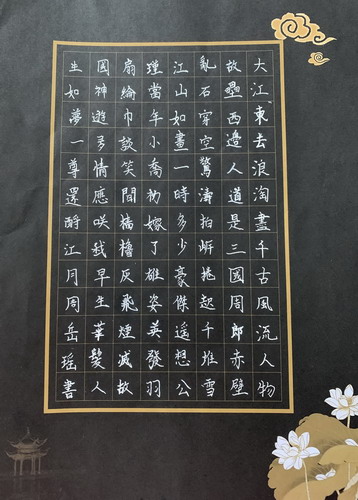 大江東去浪淘盡千古風流人物
故壘西邊人道是三國周郎赤壁
亂石穿空驚濤拍岍捲起千堆雪
江山如畫一時多少豪傑遥想公
瑾當年小喬初嫁了雄姿英發羽
扇綸巾談笑間檣櫓灰飛煙滅故
國神遊多情應咲我早生華髮人
生如夢一尊還酹江月周岳瑤書